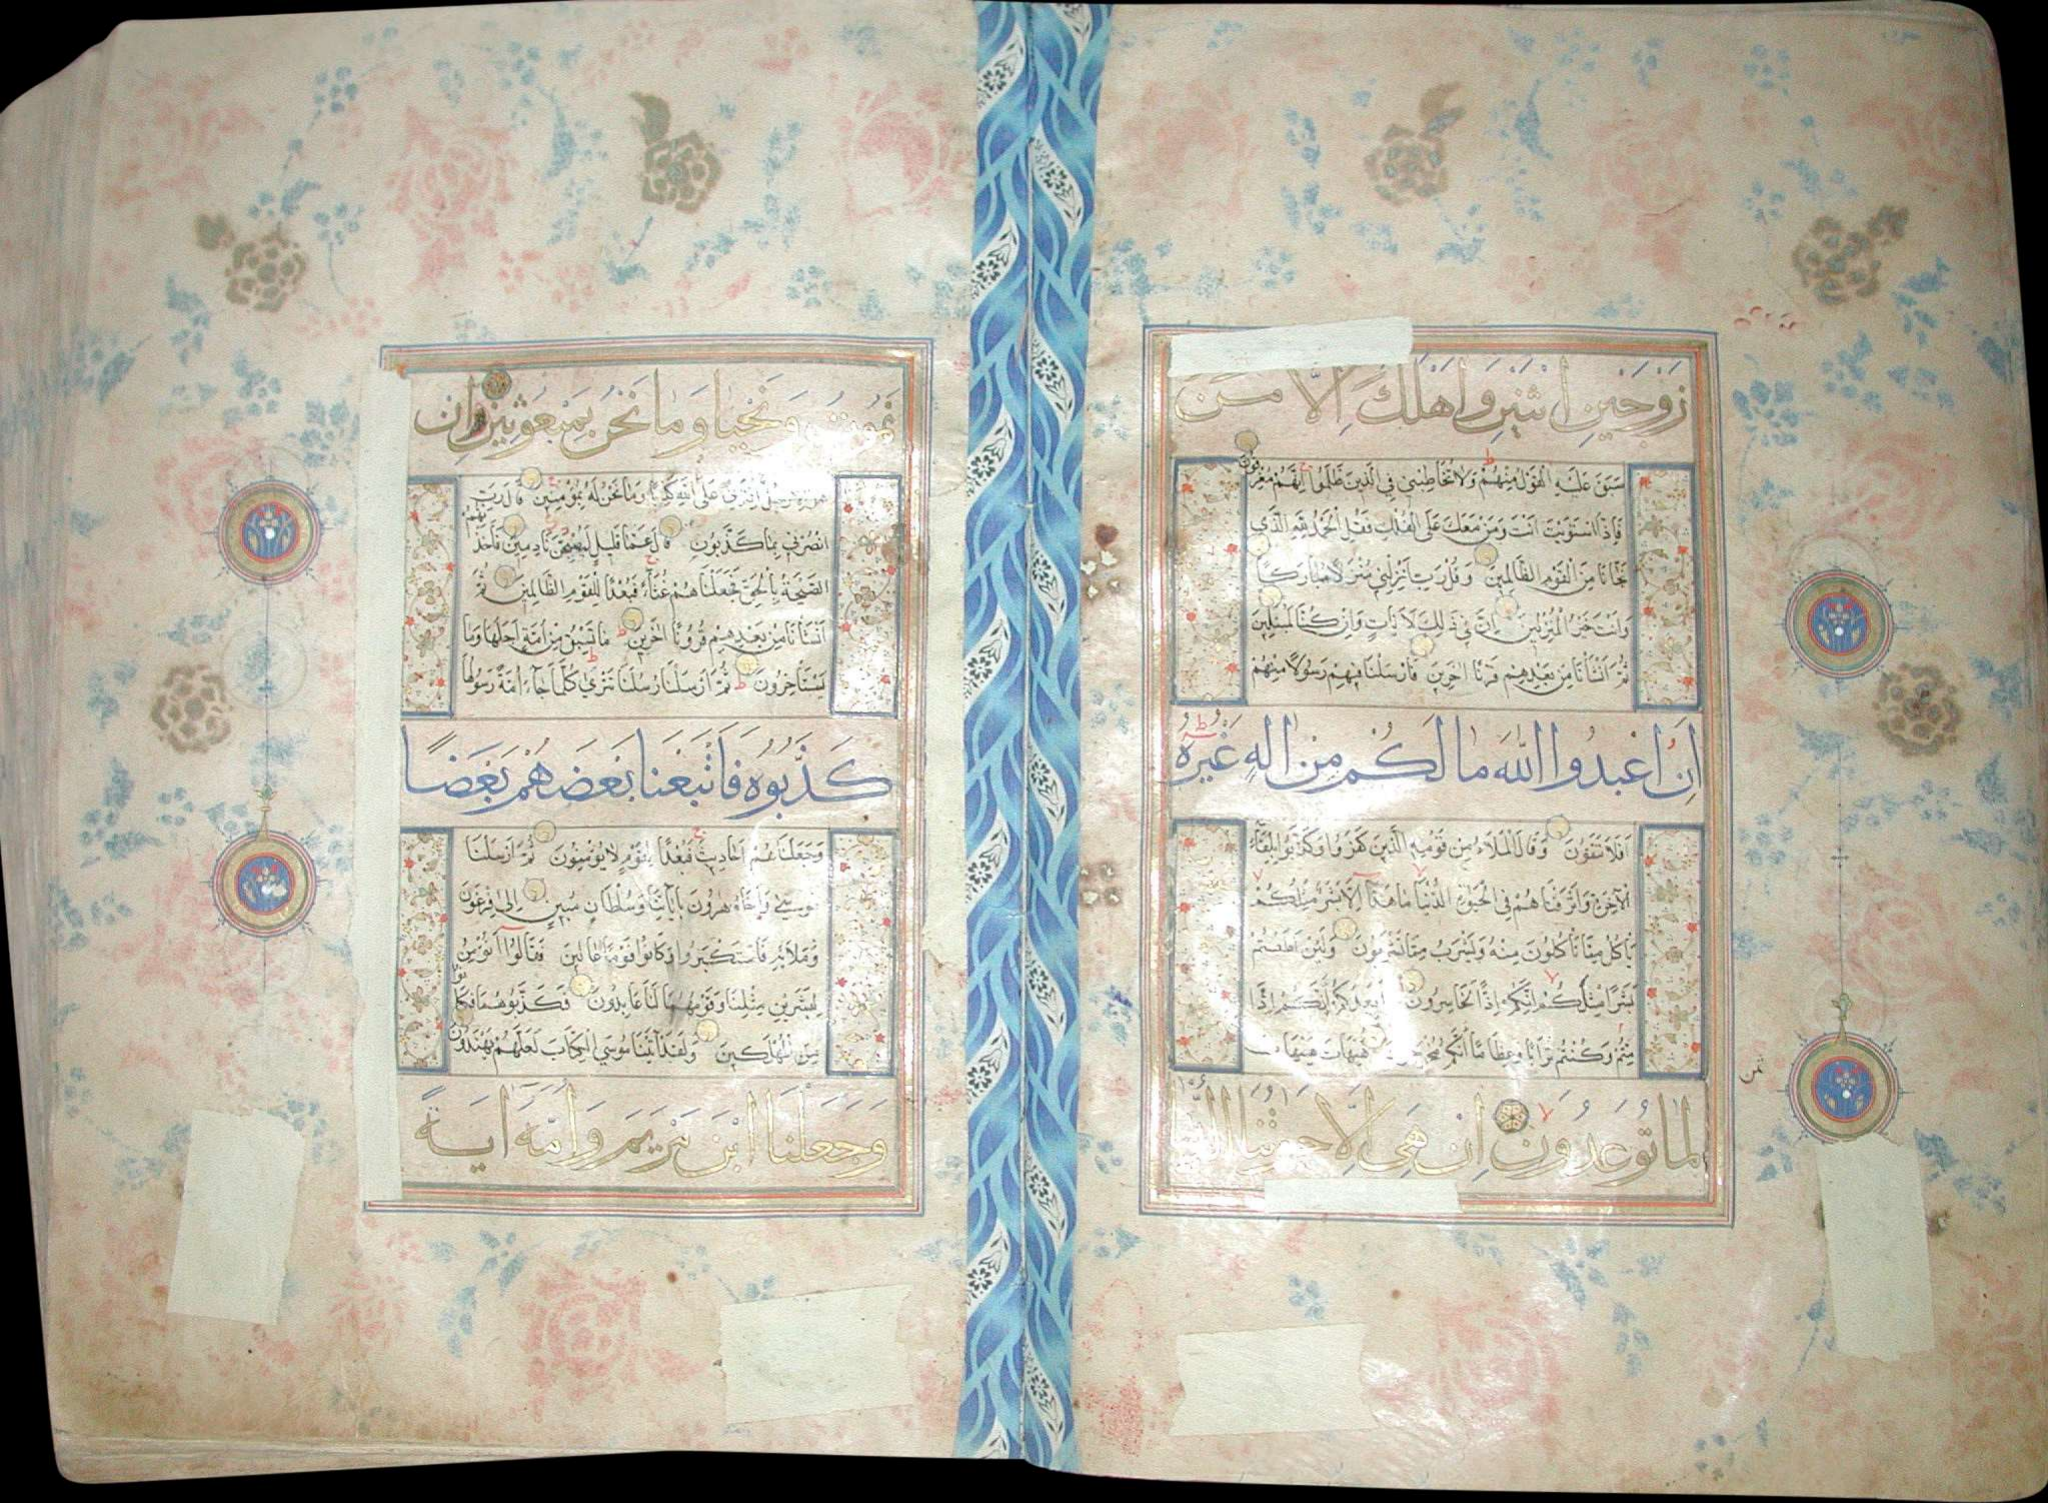 زَوْجَيْنِ اثْنَيْنِ وَاَهْلَكَ اِلَّا مَنْ
سَبَقَ عَلَيْهِ الْقَوْلُ مِنْهُمْ وَلَا تُخَاطِبْنِي فِي الَّذِينَ ظَلَمُوا اِنَّهُمْ مُغْرَقُونَ
فَاِذَا اسْتَوَيْتَ اَنْتَ وَمَنْ مَعَكَ عَلَى الْفُلْكِ فَقُلِ الْحَمْدُ لِلّٰهِ الَّذِي
نَجَّانَا مِنَ الْقَوْمِ الظَّالِمِينَ وَقُلْ رَبِّ اَنْزِلْنِي مُنْزَلًا مُبَارَكًا
وَاَنْتَ خَيْرُ الْمُنْزِلِينَ اِنَّ فِي ذٰلِكَ لَاٰيَاتٍ وَاِنْ كُنَّا لَمُبْتَلِينَ
ثُمَّ اَنْشَأْنَا مِنْ بَعْدِهِمْ قَرْنًا اٰخَرِينَ فَاَرْسَلْنَا فِيهِمْ رَسُولًا مِنْهُمْ
اَنِ اعْبُدُوا اللّٰهَ مَا لَكُمْ مِنْ اِلٰهٍ غَيْرُهُ
اَفَلَا تَتَّقُونَ وَقَالَ الْمَلَاُ مِنْ قَوْمِهِ الَّذِينَ كَفَرُوا وَكَذَّبُوا بِلِقَاءِ
الْاٰخِرَةِ وَاَتْرَفْنَاهُمْ فِي الْحَيٰوةِ الدُّنْيَا مَا هٰذَا اِلَّا بَشَرٌ مِثْلُكُمْ
يَأْكُلُ مِمَّا تَأْكُلُونَ مِنْهُ وَيَشْرَبُ مِمَّا تَشْرَبُونَ وَلَئِنْ اَطَعْتُمْ
بَشَرًا مِثْلَكُمْ اِنَّكُمْ اِذًا لَخَاسِرُونَ اَيَعِدُكُمْ اَنَّكُمْ اِذَا
مِتُّمْ وَكُنْتُمْ تُرَابًا وَعِظَامًا اَنَّكُمْ مُخْرَجُونَ هَيْهَاتَ هَيْهَاتَ
لِمَا تُوعَدُونَ اِنْ هِيَ اِلَّا حَيَاتُنَا الدُّنْيَا
ثمن
نَمُوتُ وَنَحْيَا وَمَا نَحْنُ بِمَبْعُوثِينَ اِنْ
هُوَ اِلَّا رَجُلٌ افْتَرٰى عَلَى اللّٰهِ كَذِبًا وَمَا نَحْنُ لَهُ بِمُؤْمِنِينَ قَالَ رَبِّ
انْصُرْنِي بِمَا كَذَّبُونِ قَالَ عَمَّا قَلِيلٍ لَيُصْبِحُنَّ نَادِمِينَ فَاَخَذَتْهُمُ
الصَّيْحَةُ بِالْحَقِّ فَجَعَلْنَاهُمْ غُثَاءً فَبُعْدًا لِلْقَوْمِ الظَّالِمِينَ ثُمَّ
اَنْشَأْنَا مِنْ بَعْدِهِمْ قُرُونًا اٰخَرِينَ مَا تَسْبِقُ مِنْ اُمَّةٍ اَجَلَهَا وَمَا
يَسْتَأْخِرُونَ ثُمَّ اَرْسَلْنَا رُسُلَنَا تَتْرٰى كُلَّمَا جَاءَ اُمَّةً رَسُولُهَا
كَذَّبُوهُ فَاَتْبَعْنَا بَعْضَهُمْ بَعْضًا
وَجَعَلْنَاهُمْ اَحَادِيثَ فَبُعْدًا لِقَوْمٍ لَا يُؤْمِنُونَ ثُمَّ اَرْسَلْنَا
مُوسٰى وَاَخَاهُ هٰرُونَ بِاٰيَاتِنَا وَسُلْطَانٍ مُبِينٍ اِلٰى فِرْعَوْنَ
وَمَلَائِهِ فَاسْتَكْبَرُوا وَكَانُوا قَوْمًا عَالِينَ فَقَالُوا اَنُؤْمِنُ
لِبَشَرَيْنِ مِثْلِنَا وَقَوْمُهُمَا لَنَا عَابِدُونَ فَكَذَّبُوهُمَا فَكَانُوا
مِنَ الْمُهْلَكِينَ وَلَقَدْ اٰتَيْنَا مُوسَى الْكِتَابَ لَعَلَّهُمْ يَهْتَدُونَ
وَجَعَلْنَا ابْنَ مَرْيَمَ وَاُمَّهُ اٰيَةً